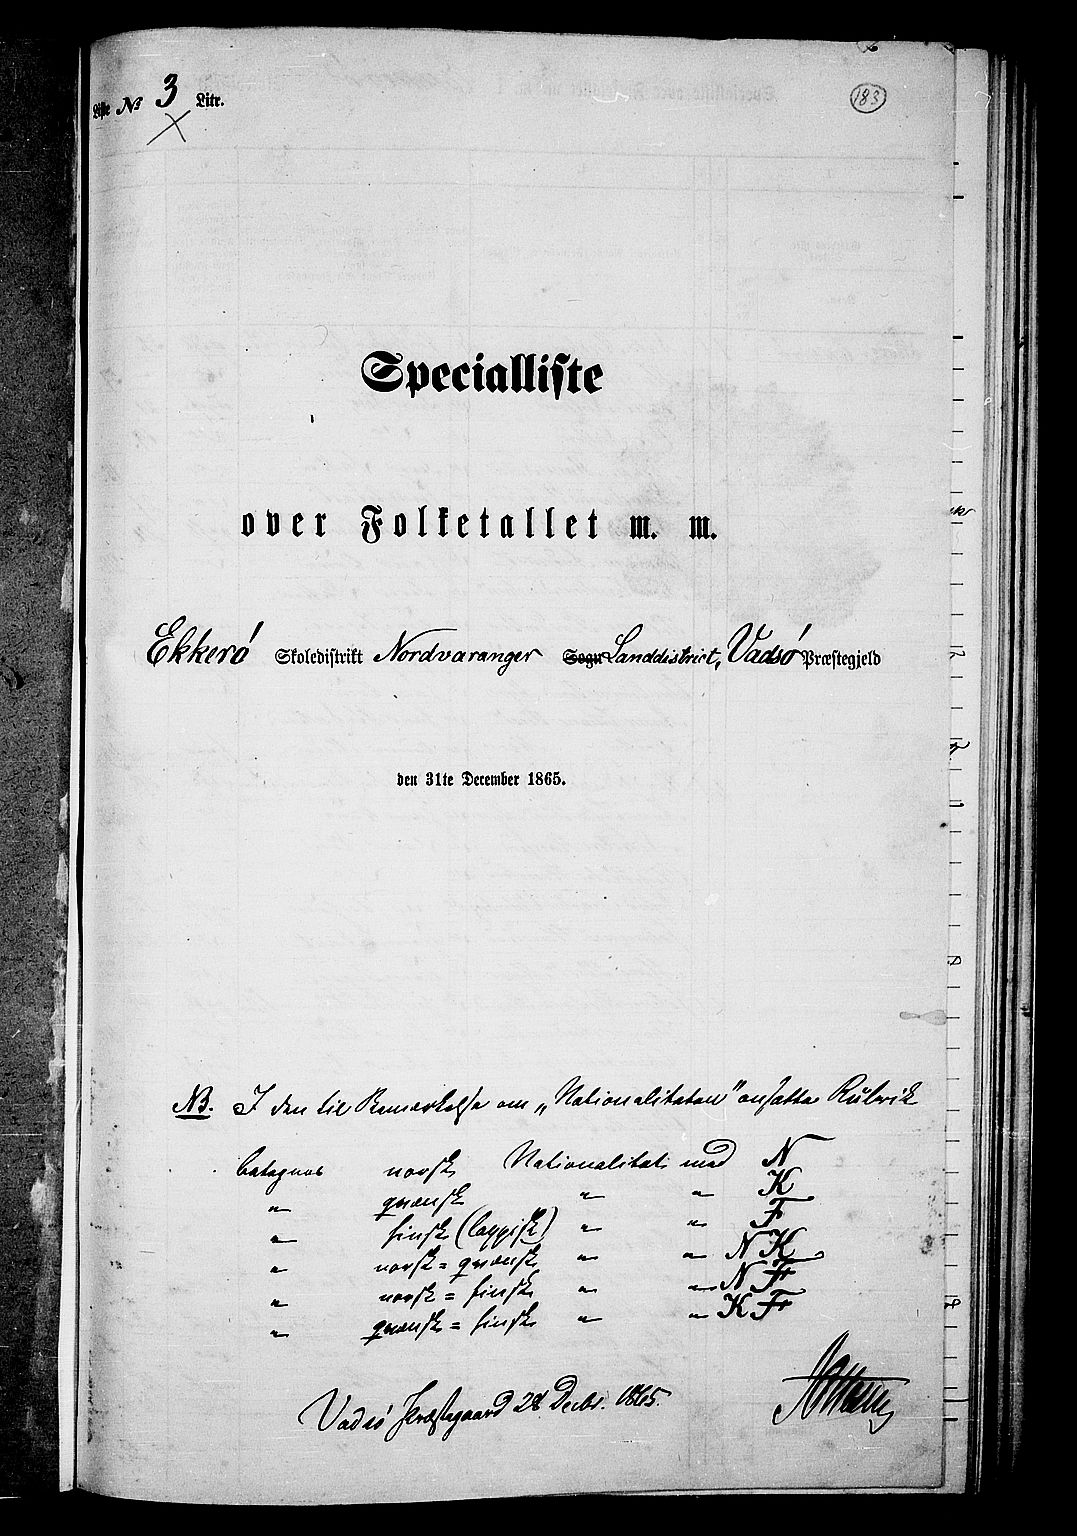 Liste № 3 Litr.
183
Specialliste
over Folketallet m. m.
Ekkerö Skoledistrikt Nordvaranger Sogn Landdistrict, Vadsö Præstegjeld
den 31te December 1865.
NB. I den til Bemærkelse om „Nationaliteten" ansatte Rubrik
betegnes norsk Nationalitet med N
" qvænsk " " K
" finsk (lappisk) " " F
" norsk = qvænsk " " NK
" norsk = finsk " " NF
" qvænsk = finsk " " KF
Vadsö Præstegaard 28 Decbr. 1865.